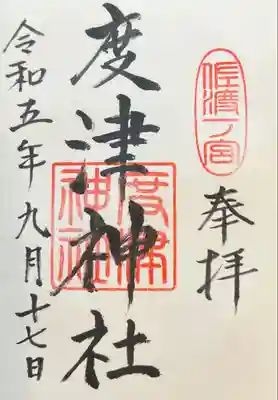 佐渡一ノ宮
奉拝
度津神社
度津神社
令和五年九月十七日